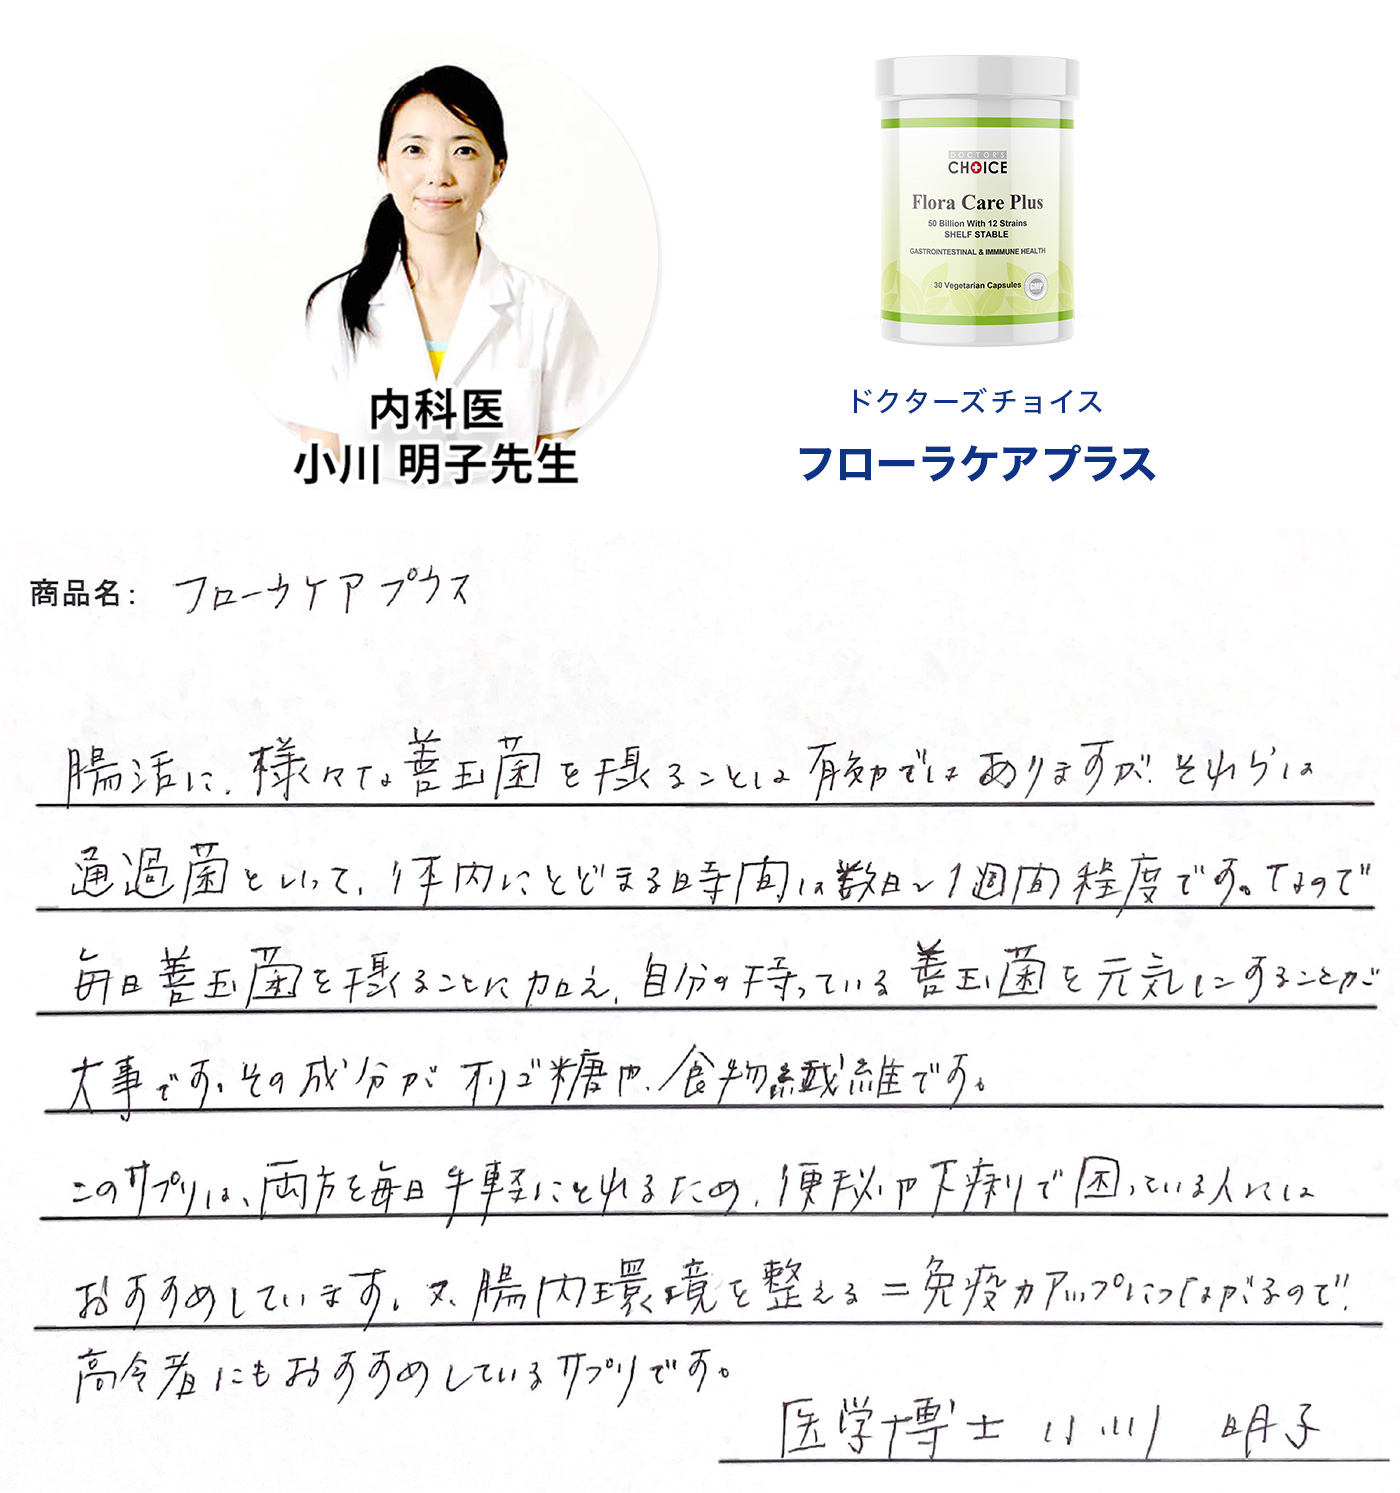 内科医
小川 明子先生
DOCTOR'S
CHOICE
Flora Care Plus
50 Billion With 12 Strains
SHELF STABLE
GASTROINTESTINAL & IMMMUNE HEALTH
30 Vegetarian Capsules
GMP
ドクターズチョイス
フローラケアプラス
商品名: フローラケアプラス
腸活に、様々な善玉菌を摂ることは有効ではありますが、それらは
通過菌といって、体内にとどまる時間は数日~1週間程度です。なので
毎日善玉菌を摂ることに加え、自分の持っている善玉菌を元気にすることが
大事です。その成分がオリゴ糖や、食物繊維です。
このサプリは、両方を毎日手軽にとれるため、便秘や下痢で困っている人には
おすすめしています。又、腸内環境を整える=免疫力アップにつながるので、
高令者にもおすすめしているサプリです。
医学博士 小川 明子